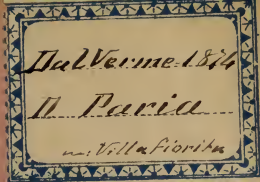 Dal Verme 1874
Il Paria
m: Villafiorita